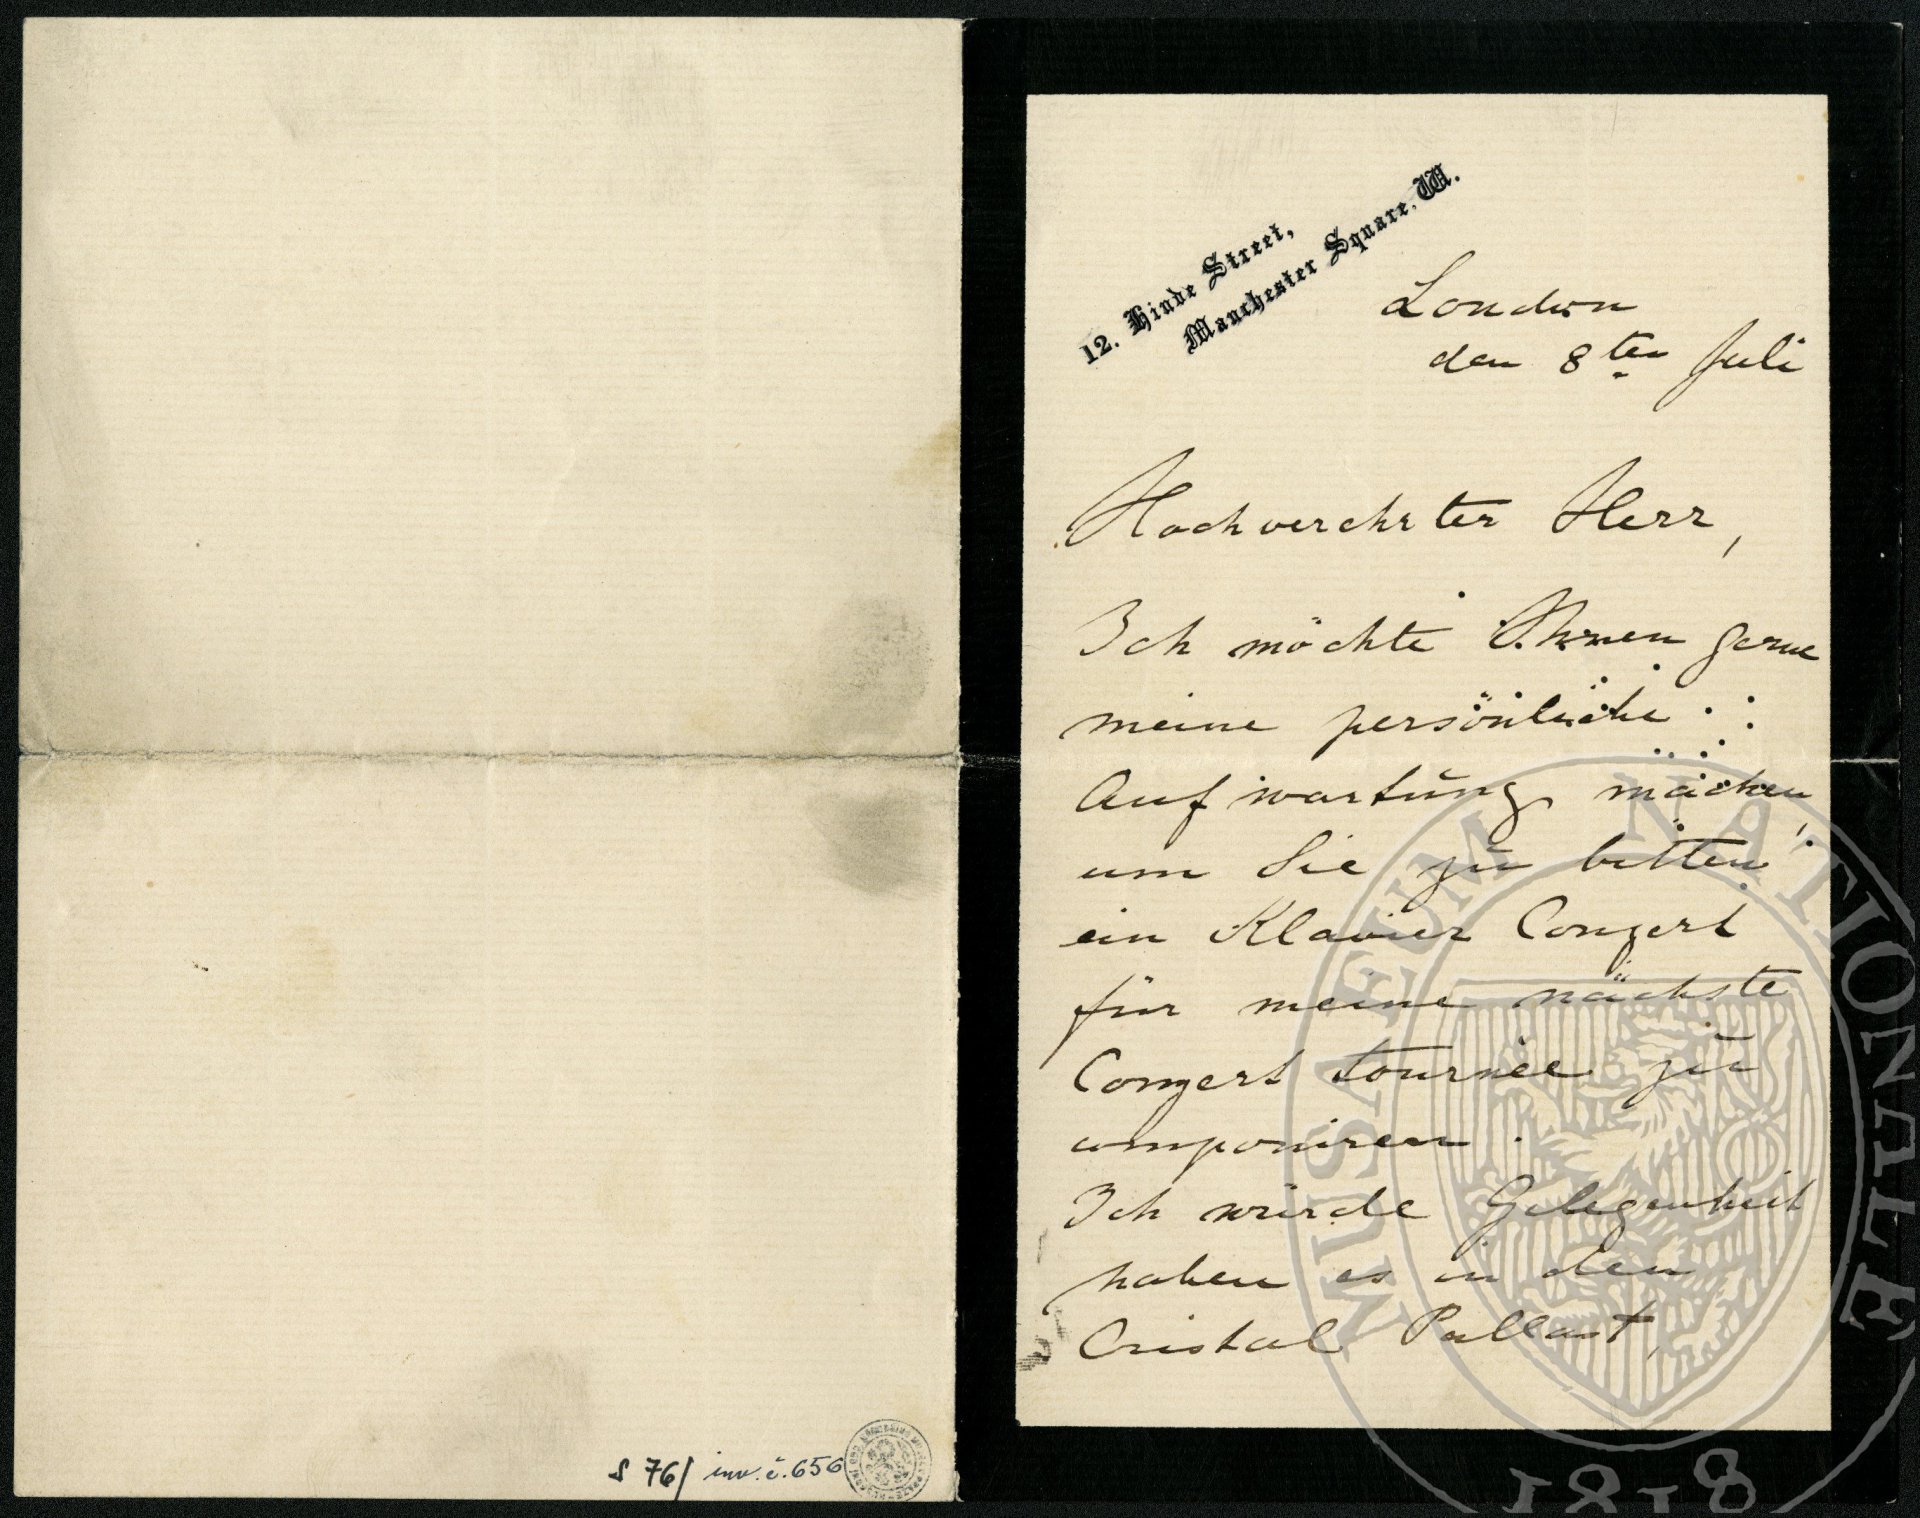 S 76/ inv. č. 656
12. Hinde Street,
Manchester Square, W.
London
den 8ten Juli
Hochverehrter Herr,
Ich möchte Ihnen gerne
meine persönliche
Aufwartung machen,
um Sie zu bitten
ein Klavier Conzert
für meine nächste
Conzert tournée zu
componiren.
Ich würde Gelegenheit
haben es in den
Cristal Pallast,
MUSAEUM NATIONALE
1818